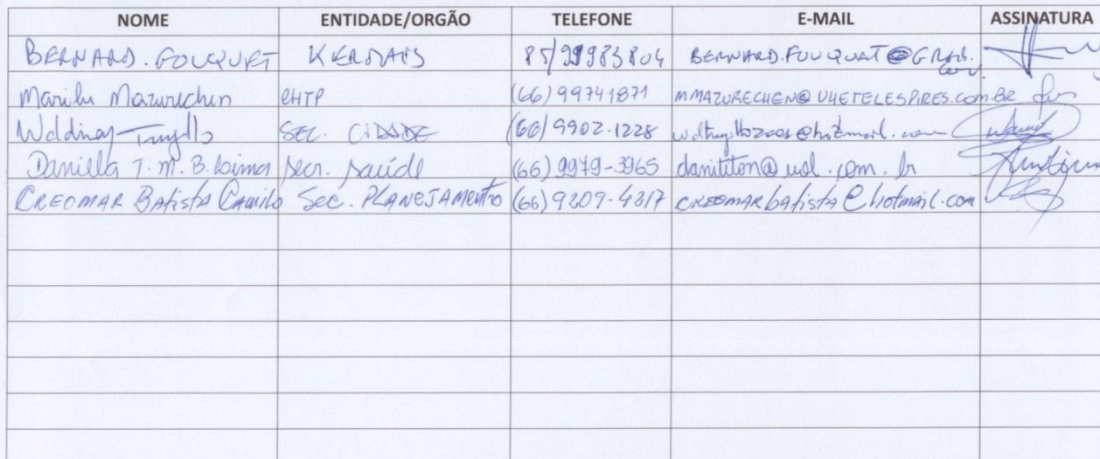 NOME ENTIDADE/ORGÃO TELEFONE E-MAIL ASSINATURA
BERNARD. FOUQUET KERNAIS 85/99983804 BERNARD.FOUQUET@GMAIL.COM
Marilu Mazurechen CHTP (66) 99741871 MMAZURECHEN@UHETELESPIRES.COM.BR
SEC. CIDADE (66) 9902-1228
Daniella T. M. B. sec. saúde (66) 9979-3965 danititon@uol.com.br
CREOMAR Batista Camilo Sec. PLANEJAMENTO (66) 9209-4317 CREOMARbatista@hotmail.com